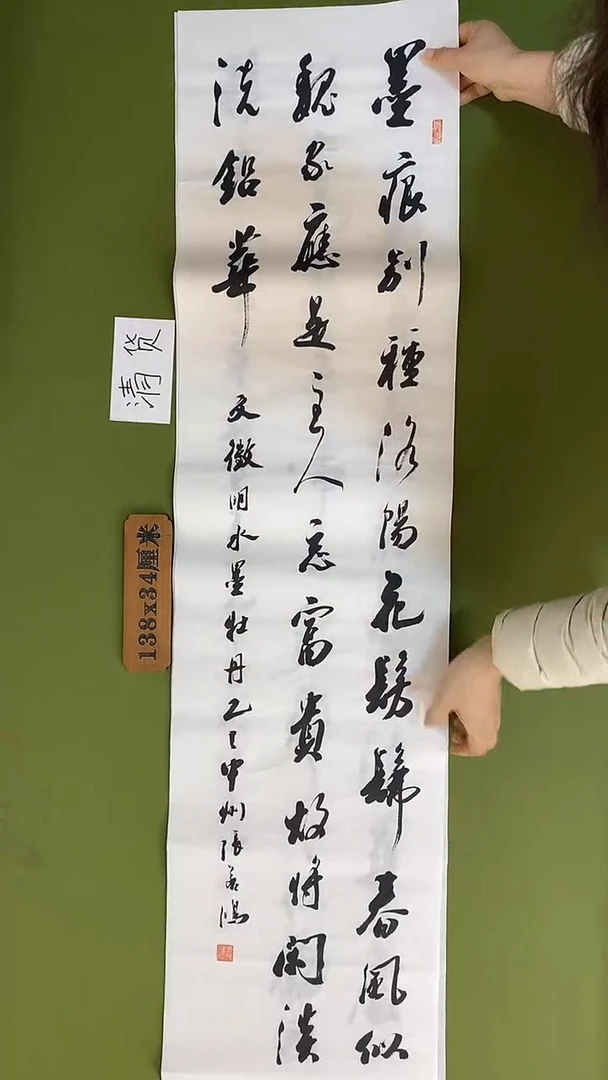 墨痕别種洛陽花髣髴春風似
魏家應是主人忘富貴故將閑淡
洗鉛華
文徵明水墨牡丹乙巳中州張若鴻
清货
138x34厘米